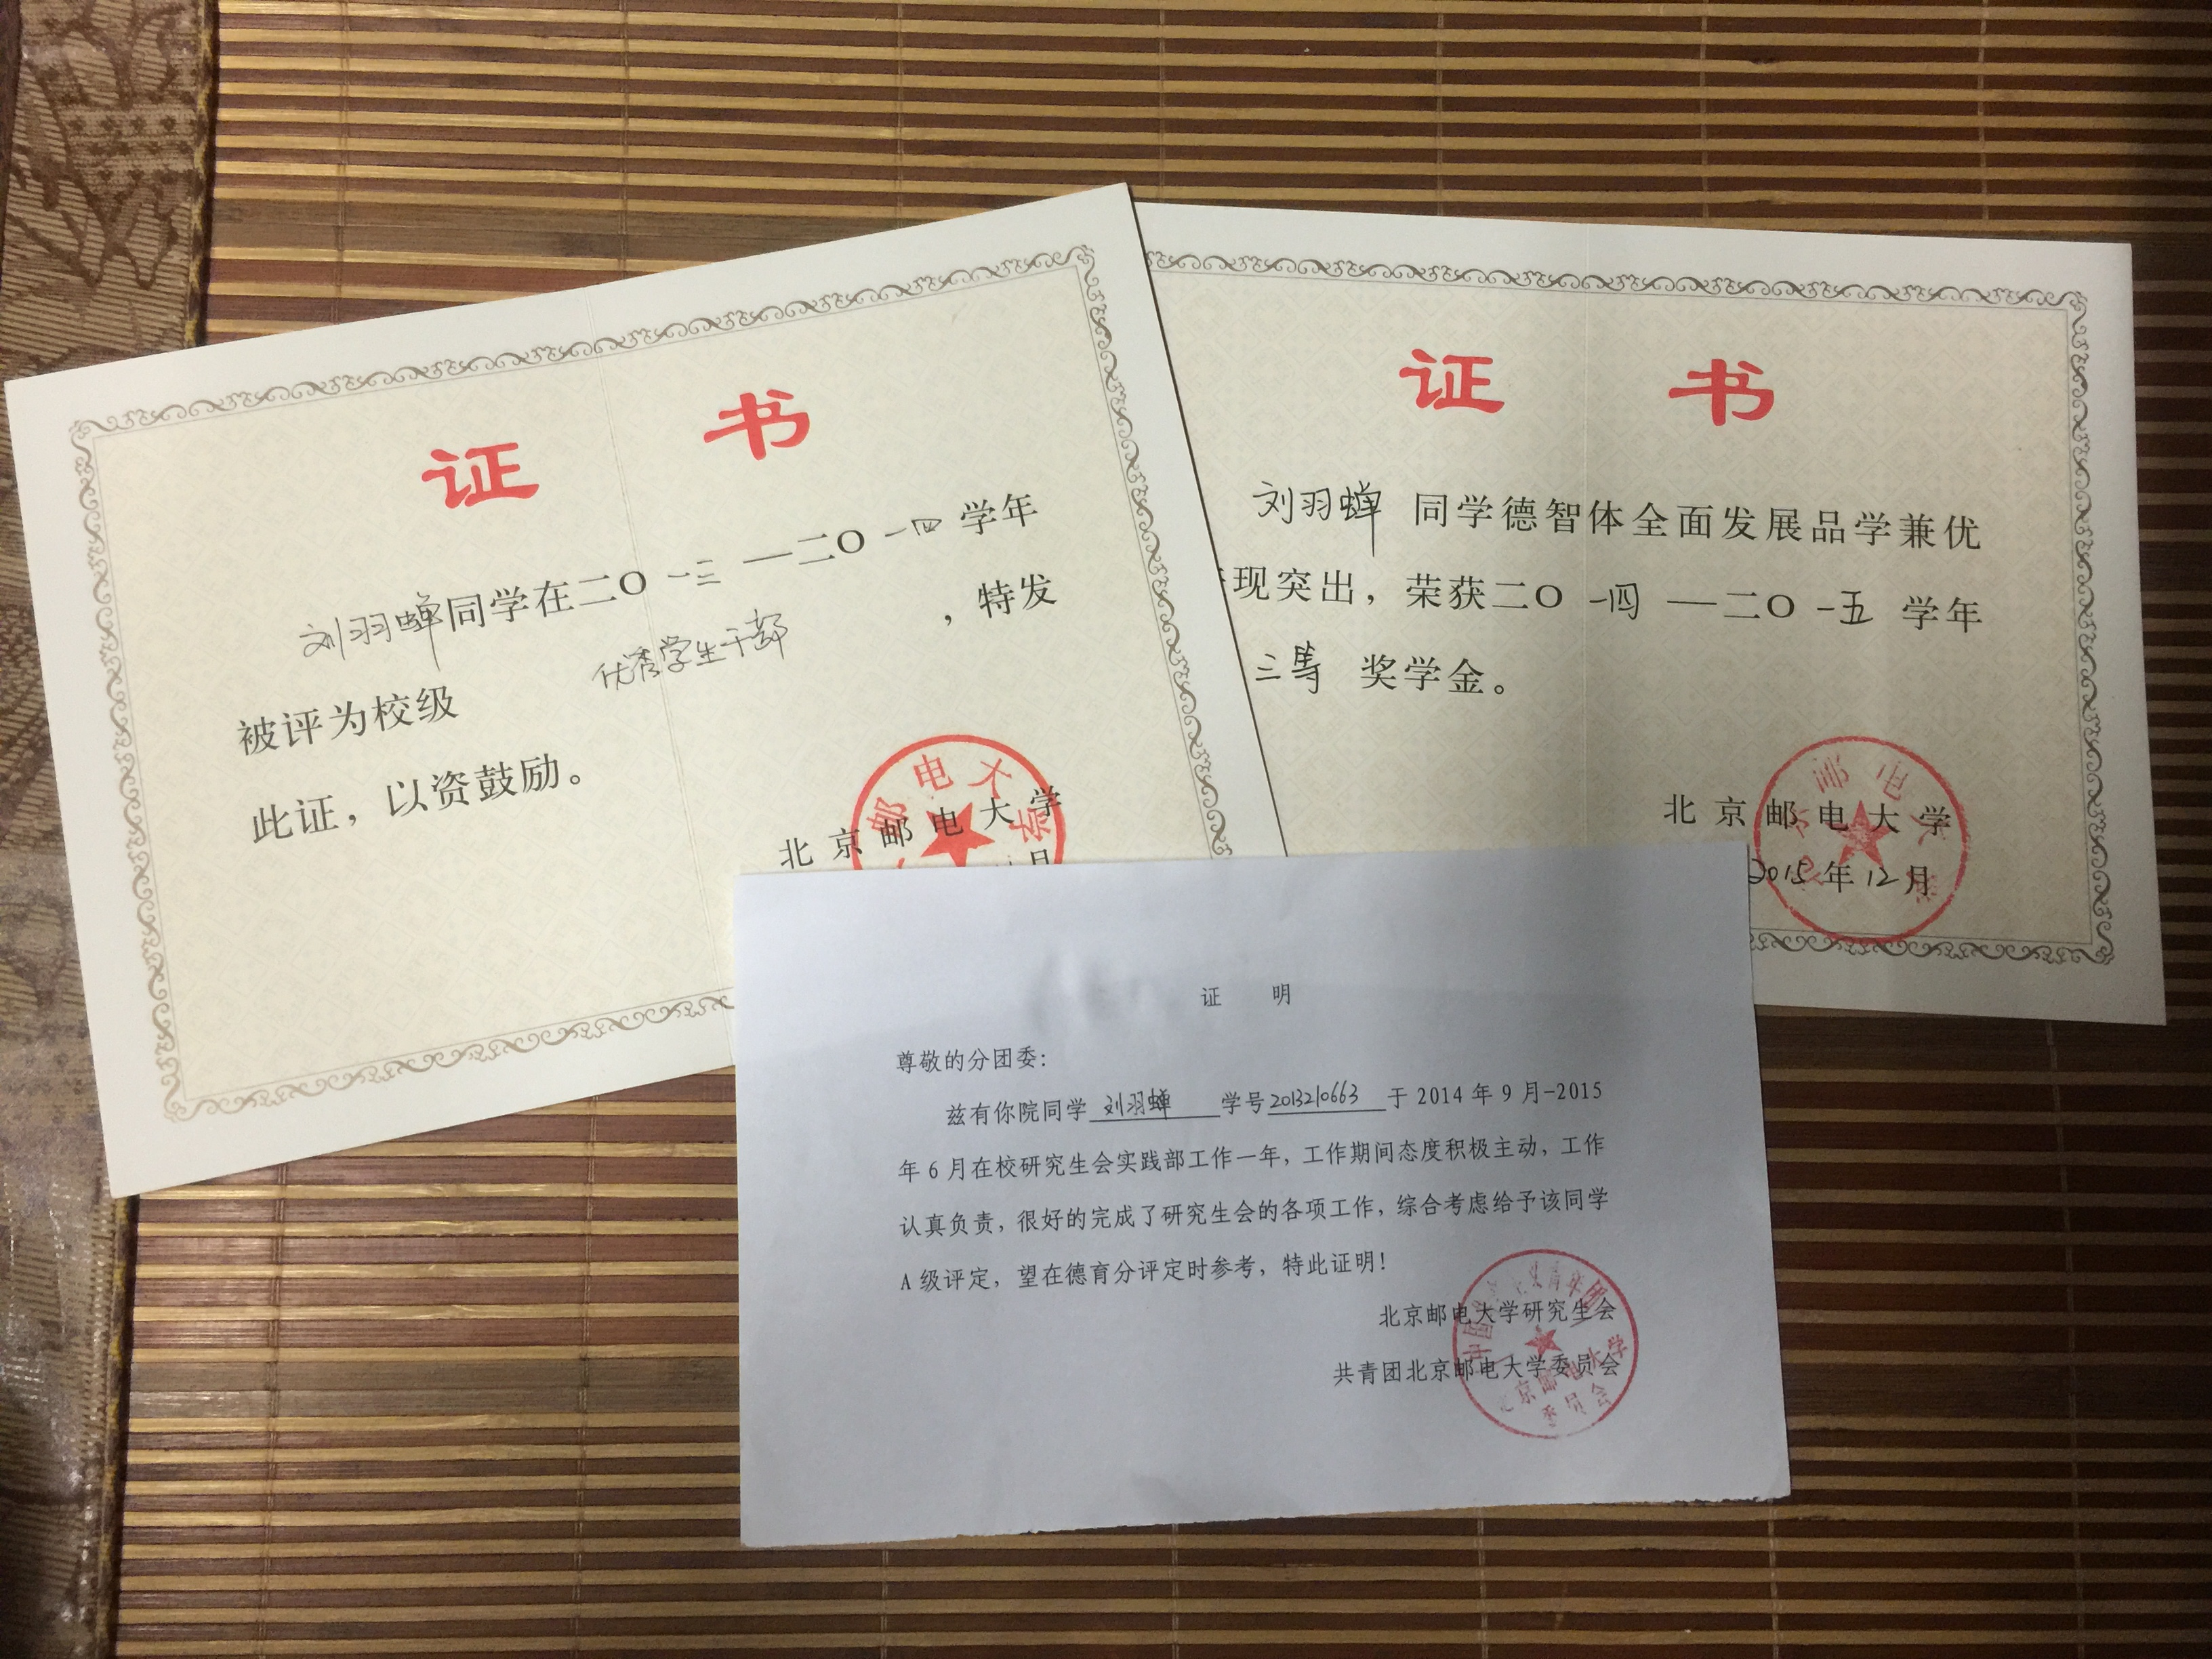 证 书
刘羽蝉同学在二〇一三—二〇一四学年
被评为校级 优秀学生干部 ，特发
此证，以资鼓励。
北京邮电大学
月
邮电大学
证 书
刘羽蝉 同学德智体全面发展品学兼优
现突出，荣获二〇一四—二〇一五学年
三等 奖学金。
北京邮电大学
2015年12月
证 明
尊敬的分团委：
兹有你院同学 刘羽蝉 学号 2013210663 于 2014 年 9 月-2015
年 6 月在校研究生会实践部工作一年，工作期间态度积极主动，工作
认真负责，很好的完成了研究生会的各项工作，综合考虑给予该同学
A 级评定，望在德育分评定时参考，特此证明！
北京邮电大学研究生会
共青团北京邮电大学委员会